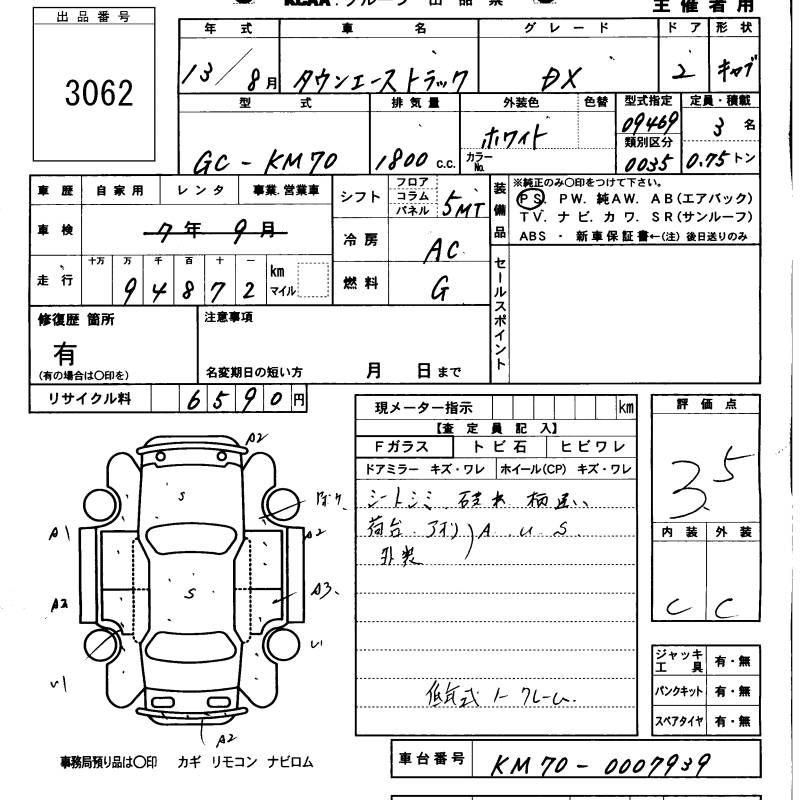 KCAA グループ 出品票
主催者用
出品番号
3062
年式 車名 グレード ドア 形状
13/8月 タウンエーストラック DX 2 キャブ
型式 排気量 外装色 色替 型式指定 定員・積載
GC-KM70 1800 c.c. ホワイト カラーNo. 09469 3名
類別区分
0035 0.75トン
車歴 自家用 レンタ 事業.営業車
車検 7年 9月
走行 十万 万 千 百 十 一 km マイル
9 4 8 7 2
シフト フロア コラム パネル 5MT
冷房 AC
燃料 G
装備品
※純正のみ〇印をつけて下さい。
PS. PW. 純AW. AB(エアバック)
TV. ナビ. カワ. SR(サンルーフ)
ABS ・ 新車保証書←(注) 後日送りのみ
セールスポイント
修復歴 箇所
有
(有の場合は〇印を)
注意事項
名変期日の短い方 月 日まで
リサイクル料 6590円
現メーター指示 km
【査定員記入】
Fガラス トビ石 ヒビワレ
ドアミラー キズ・ワレ ホイール(CP) キズ・ワレ
シートシミ
荷台
外装 A U S
評価点
3.5
内装 外装
C C
A2
S
A1
A2
S
A3
A2
U
U1
A2
ジャッキ工具 有・無
パンクキット 有・無
スペアタイヤ 有・無
事務局預り品は〇印 カギ リモコン ナビロム
車台番号 KM70-0007939